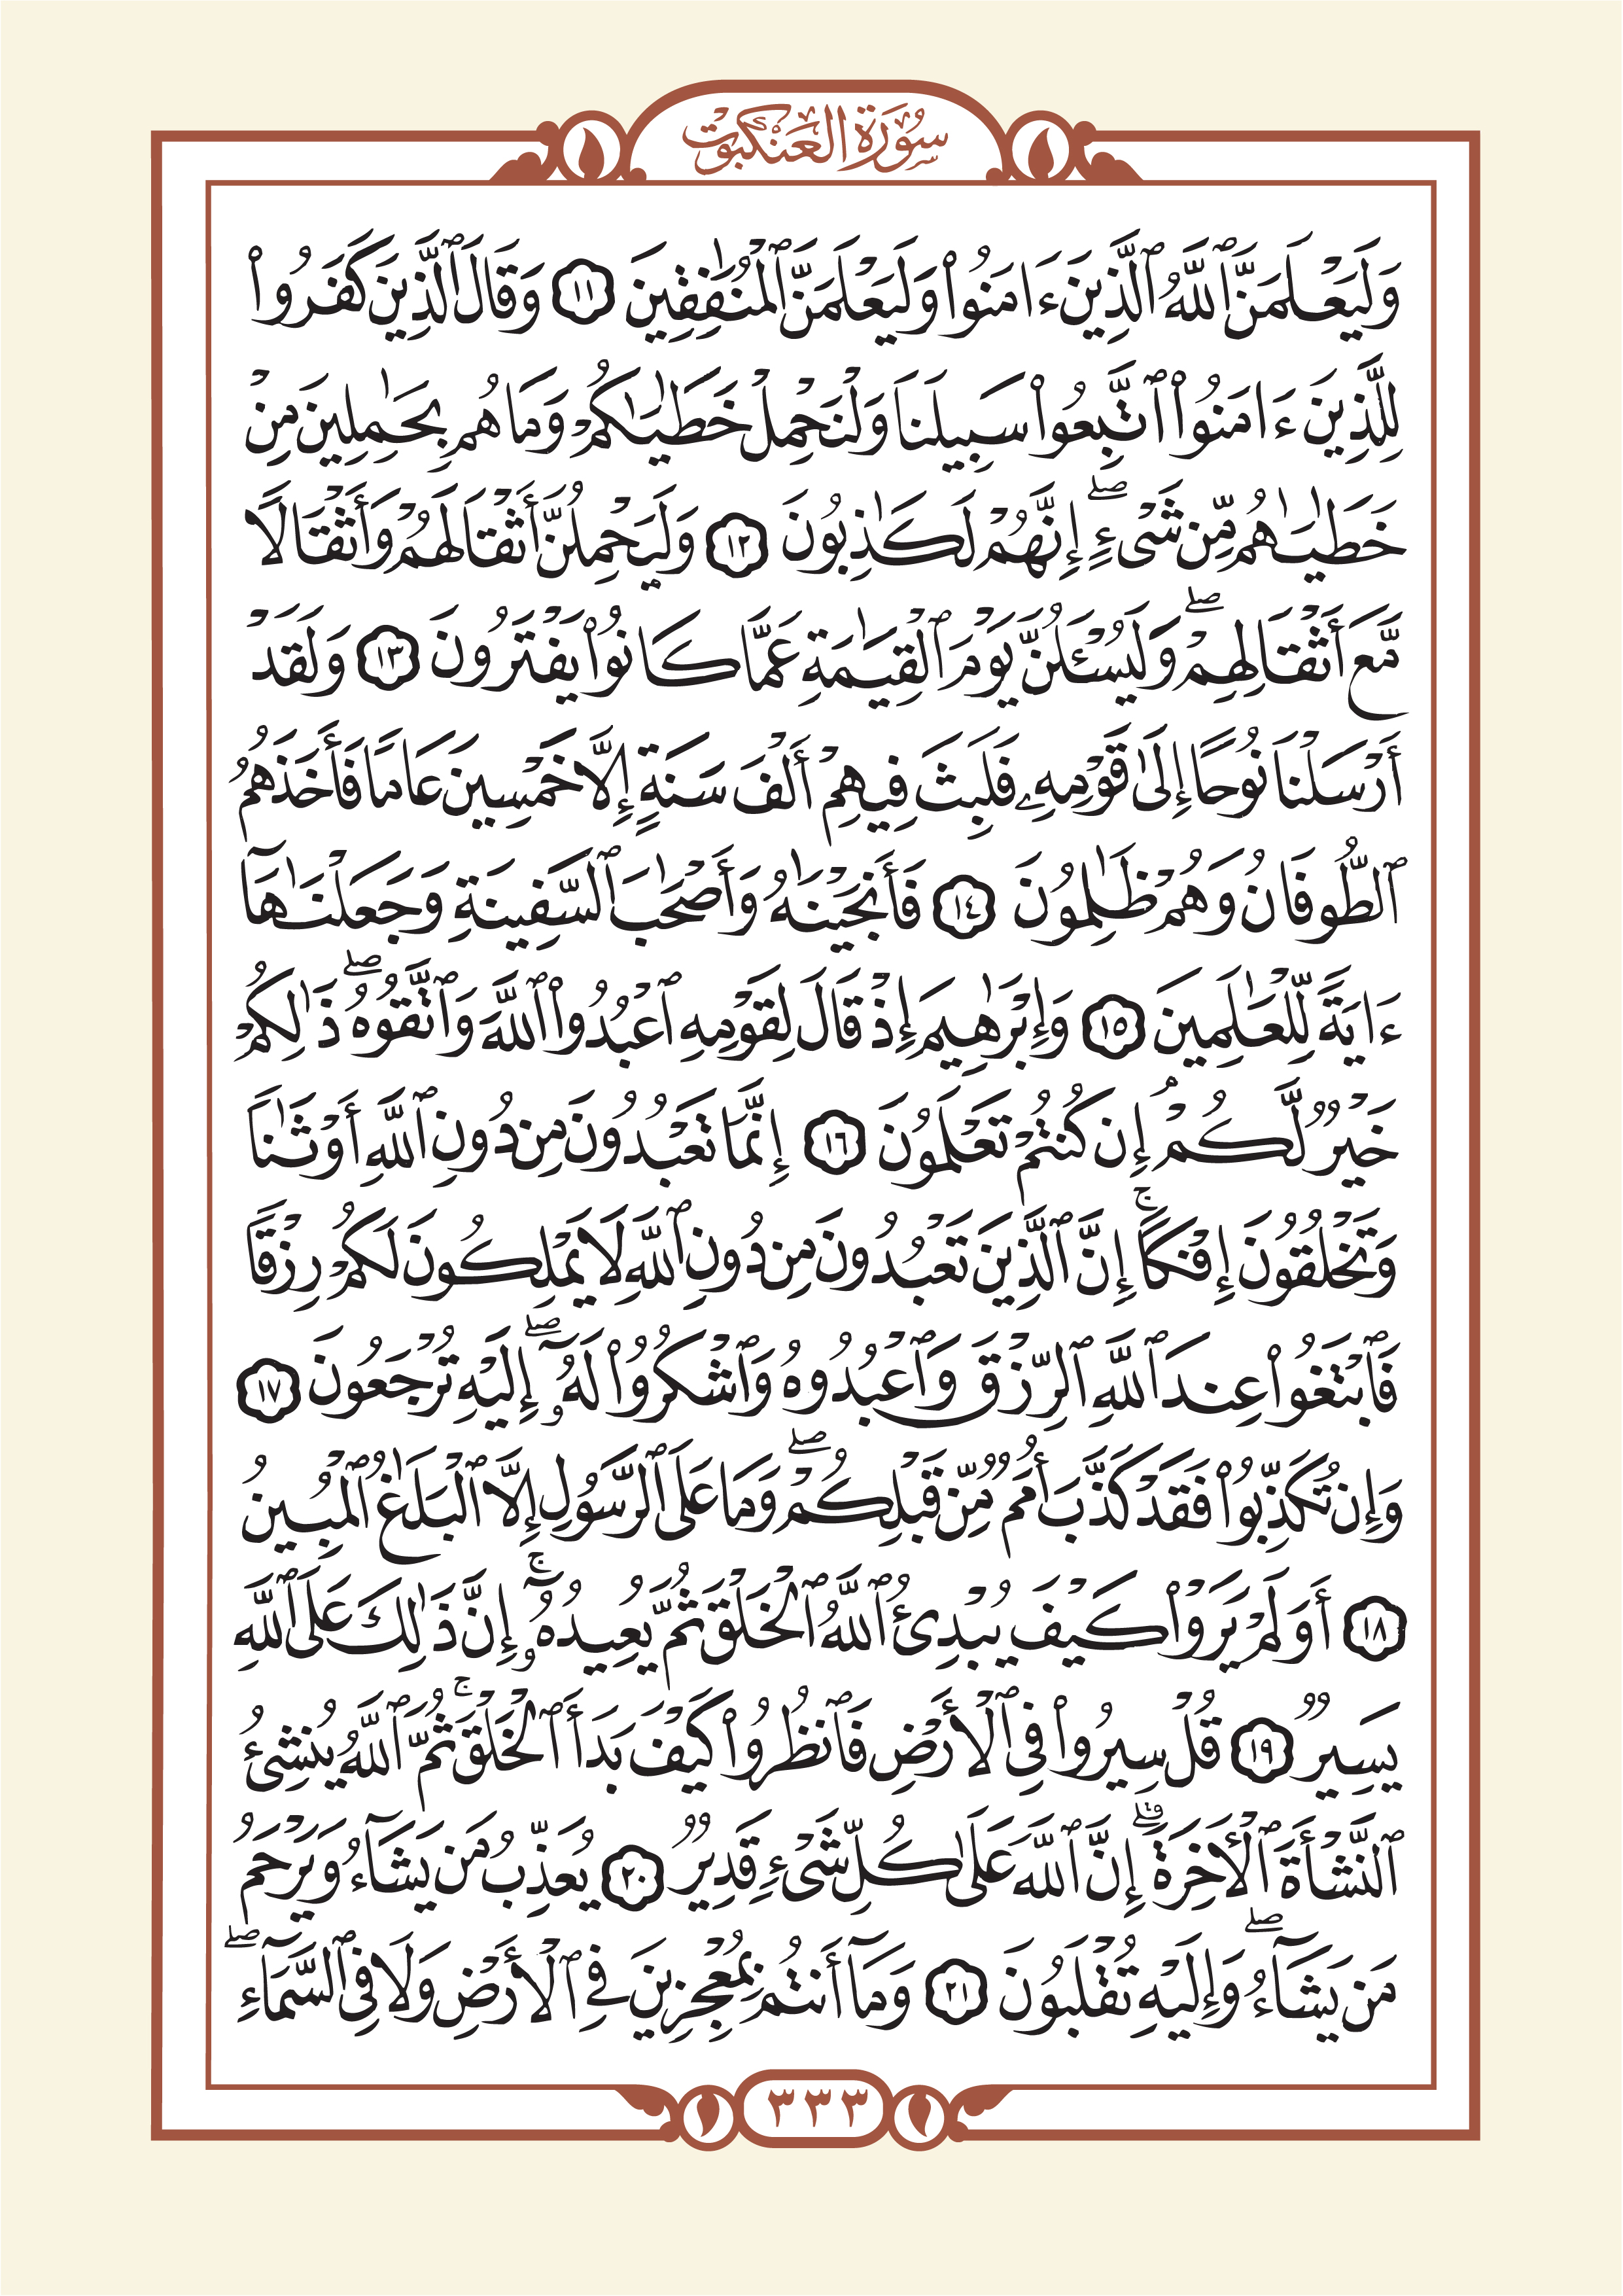 سُورَةُ العَنكَبُوت
وَلَيَعْلَمَنَّ ٱللَّهُ ٱلَّذِينَ ءَامَنُوا۟ وَلَيَعْلَمَنَّ ٱلْمُنَٰفِقِينَ ١١ وَقَالَ ٱلَّذِينَ كَفَرُوا۟
لِلَّذِينَ ءَامَنُوا۟ ٱتَّبِعُوا۟ سَبِيلَنَا وَلْنَحْمِلْ خَطَٰيَٰكُمْ وَمَا هُم بِحَٰمِلِينَ مِنْ
خَطَٰيَٰهُم مِّن شَىْءٍ ۖ إِنَّهُمْ لَكَٰذِبُونَ ١٢ وَلَيَحْمِلُنَّ أَثْقَالَهُمْ وَأَثْقَالًا
مَّعَ أَثْقَالِهِمْ ۖ وَلَيُسْـَٔلُنَّ يَوْمَ ٱلْقِيَٰمَةِ عَمَّا كَانُوا۟ يَفْتَرُونَ ١٣ وَلَقَدْ
أَرْسَلْنَا نُوحًا إِلَىٰ قَوْمِهِۦ فَلَبِثَ فِيهِمْ أَلْفَ سَنَةٍ إِلَّا خَمْسِينَ عَامًا فَأَخَذَهُمُ
ٱلطُّوفَانُ وَهُمْ ظَٰلِمُونَ ١٤ فَأَنجَيْنَٰهُ وَأَصْحَٰبَ ٱلسَّفِينَةِ وَجَعَلْنَٰهَآ
ءَايَةً لِّلْعَٰلَمِينَ ١٥ وَإِبْرَٰهِيمَ إِذْ قَالَ لِقَوْمِهِ ٱعْبُدُوا۟ ٱللَّهَ وَٱتَّقُوهُ ۖ ذَٰلِكُمْ
خَيْرٌ لَّكُمْ إِن كُنتُمْ تَعْلَمُونَ ١٦ إِنَّمَا تَعْبُدُونَ مِن دُونِ ٱللَّهِ أَوْثَٰنًا
وَتَخْلُقُونَ إِفْكًا ۚ إِنَّ ٱلَّذِينَ تَعْبُدُونَ مِن دُونِ ٱللَّهِ لَا يَمْلِكُونَ لَكُمْ رِزْقًا
فَٱبْتَغُوا۟ عِندَ ٱللَّهِ ٱلرِّزْقَ وَٱعْبُدُوهُ وَٱشْكُرُوا۟ لَهُۥٓ ۖ إِلَيْهِ تُرْجَعُونَ ١٧
وَإِن تُكَذِّبُوا۟ فَقَدْ كَذَّبَ أُمَمٌ مِّن قَبْلِكُمْ ۖ وَمَا عَلَى ٱلرَّسُولِ إِلَّا ٱلْبَلَٰغُ ٱلْمُبِينُ
١٨ أَوَلَمْ يَرَوْا۟ كَيْفَ يُبْدِئُ ٱللَّهُ ٱلْخَلْقَ ثُمَّ يُعِيدُهُۥٓ ۚ إِنَّ ذَٰلِكَ عَلَى ٱللَّهِ
يَسِيرٌ ١٩ قُلْ سِيرُوا۟ فِى ٱلْأَرْضِ فَٱنظُرُوا۟ كَيْفَ بَدَأَ ٱلْخَلْقَ ۚ ثُمَّ ٱللَّهُ يُنشِئُ
ٱلنَّشْأَةَ ٱلْـَٔاخِرَةَ ۚ إِنَّ ٱللَّهَ عَلَىٰ كُلِّ شَىْءٍ قَدِيرٌ ٢٠ يُعَذِّبُ مَن يَشَآءُ وَيَرْحَمُ
مَن يَشَآءُ ۖ وَإِلَيْهِ تُقْلَبُونَ ٢١ وَمَآ أَنتُم بِمُعْجِزِينَ فِى ٱلْأَرْضِ وَلَا فِى ٱلسَّمَآءِ ۖ
٣٣٣